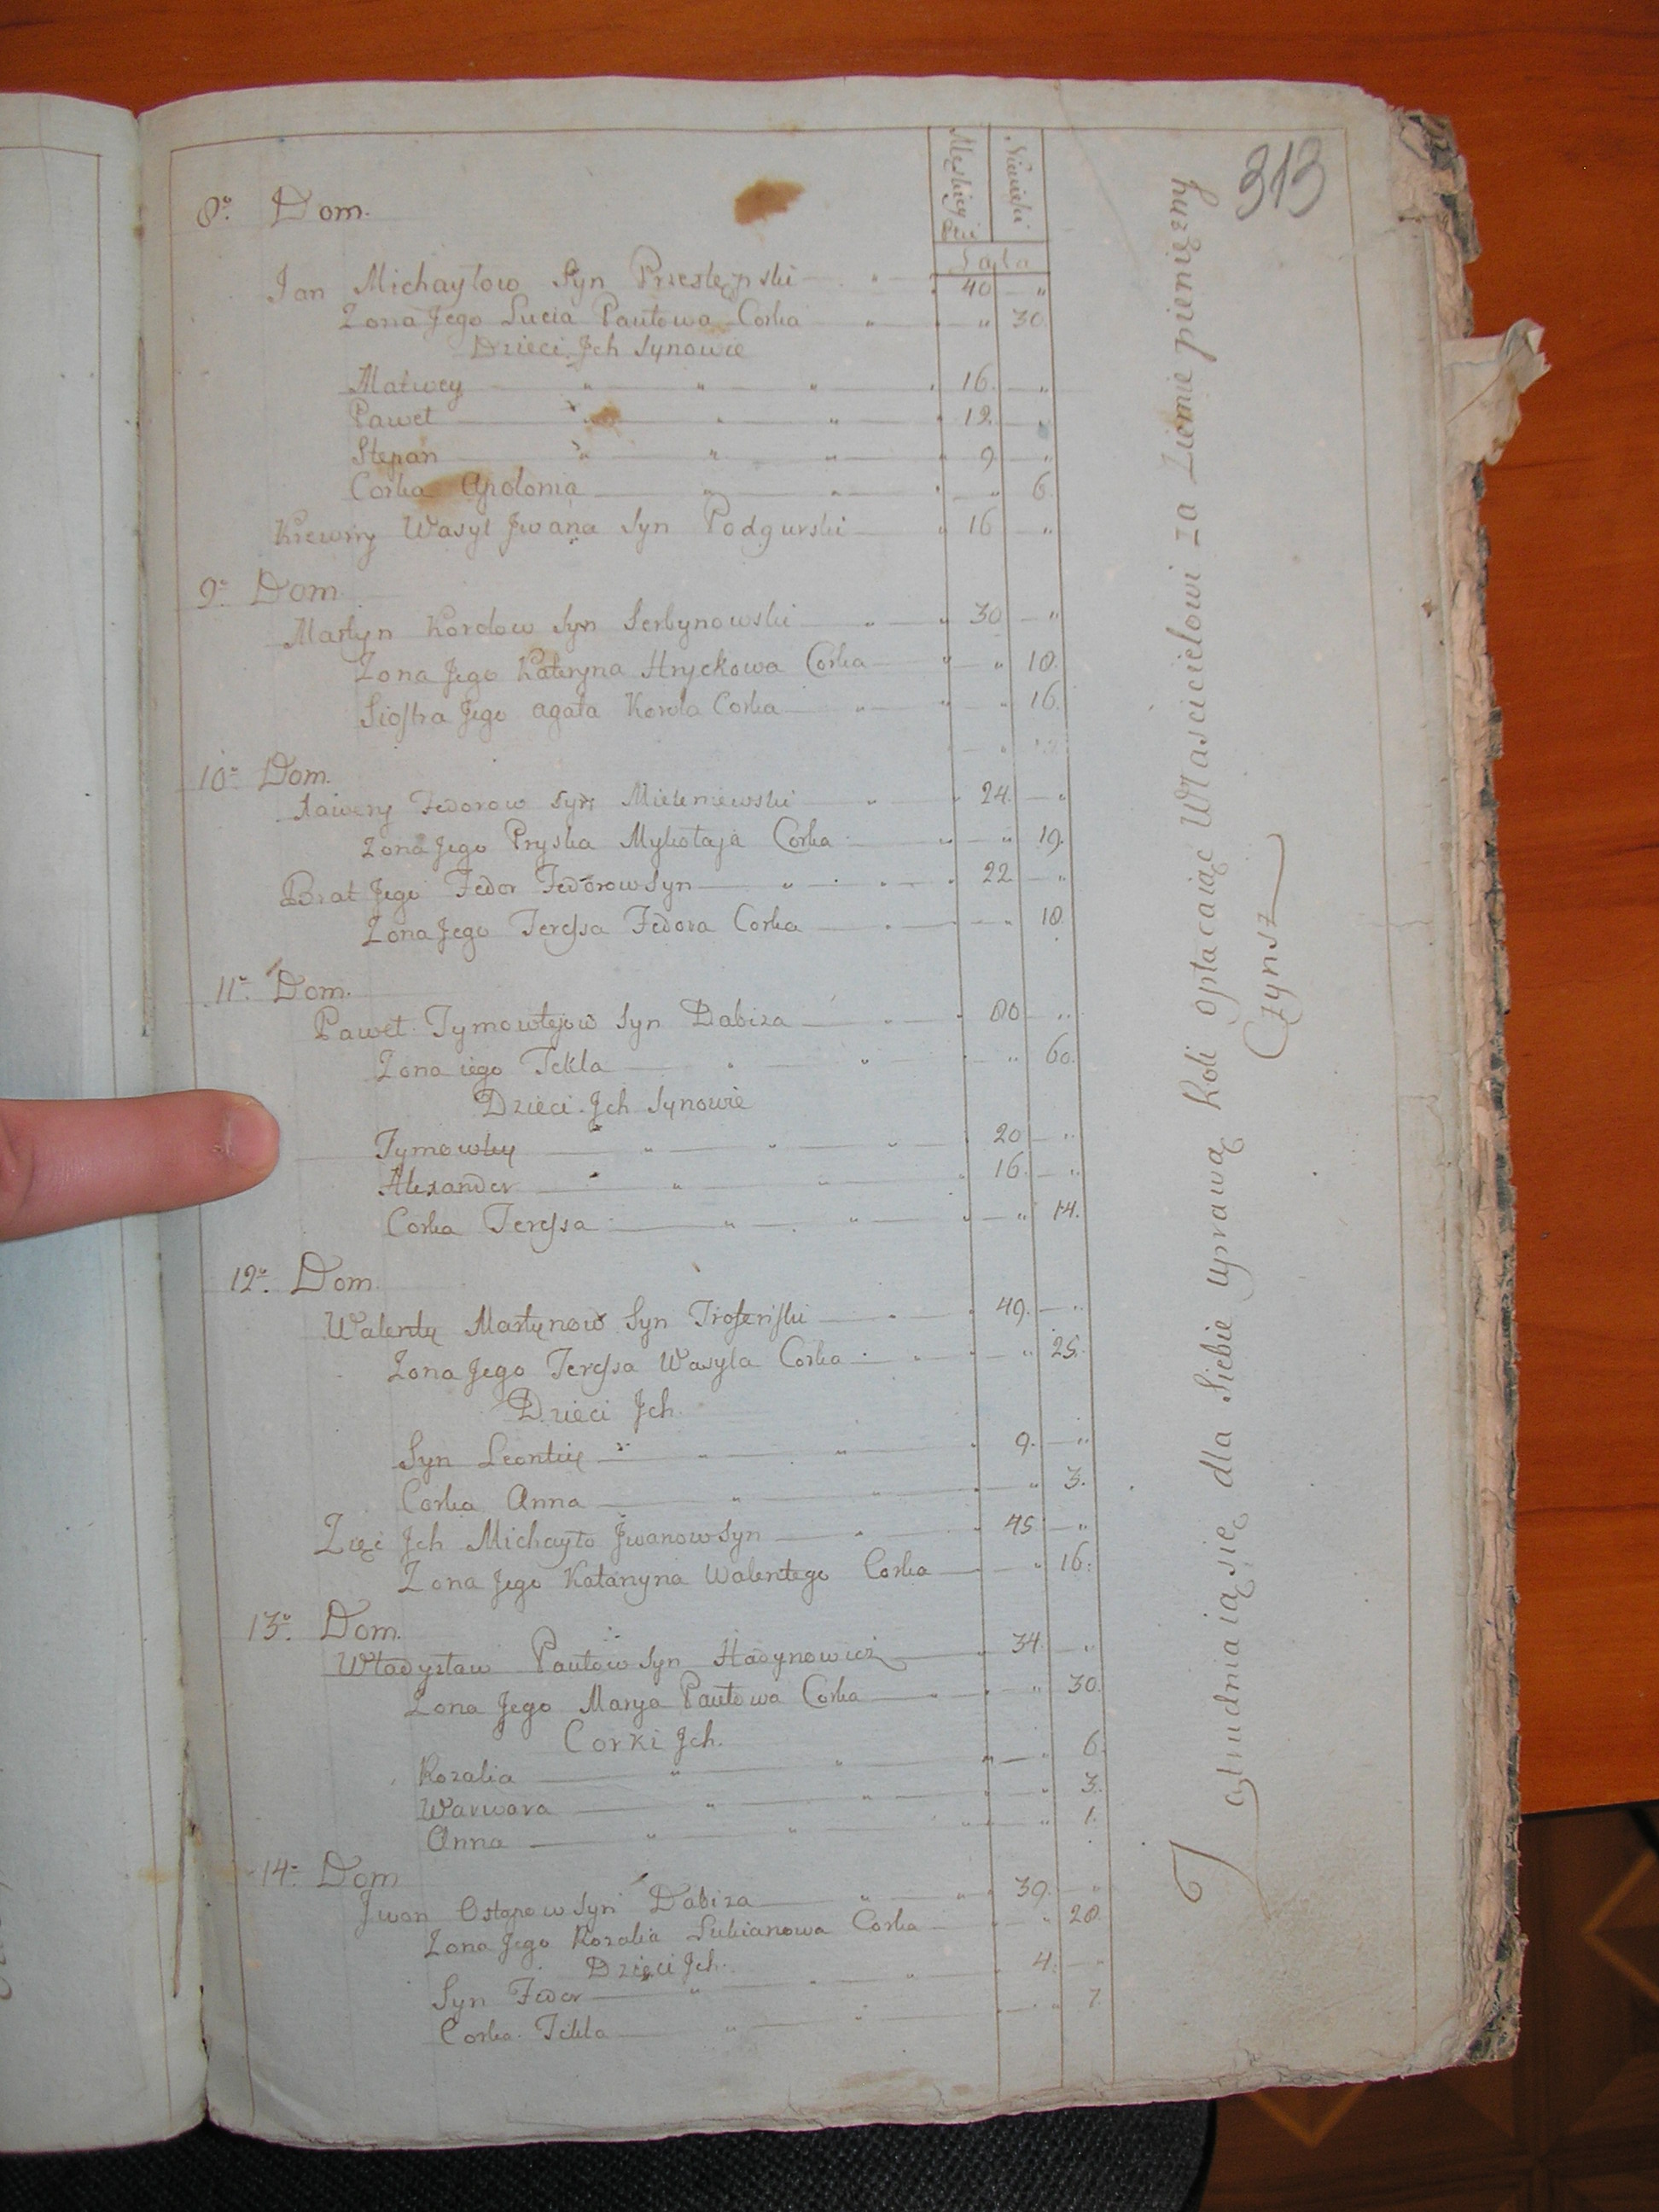 313
Męskiey Płci
Niewieści
Lata
8o. Dom.
Jan Michayłow Syn Przestępski 40 "
Zona Jego Lucia Pautowa Corka " 30
Dzieci Jch Synowie
Matwey 16. "
Paweł 12. "
Stepan 9 "
Corka Apolonia " 6.
Krewny Wasyl Jwana Syn Podgurski 16 "
9o. Dom
Martyn Korolow Syn Serbynowski 30 "
Zona Jego Kateryna Hryckowa Corka " 18.
Siostra Jego Agata Korola Corka " 16.
10o. Dom.
Fedorow Syn 24. "
Zona Jego Pryska Mykołaja Corka " 19.
Brat Jego Fedor Fedorow Syn 22 "
Zona Jego Teressa Fedora Corka " 18.
11o. Dom.
Paweł Tymowtejow Syn Dabiza 80 "
Zona iego Tekla " 60.
Dzieci Jch Synowie
Tymowtey 20 "
Alexander 16. "
Corka Teressa " 14.
12o. Dom.
Walenty Martynow Syn 49. "
Zona Jego Teressa Wasyla Corka " 25.
Dzieci Jch
Syn Leontiy 9. "
Corka Anna " 3.
Zięć Jch Michayło Jwanow Syn 45 "
Zona Jego Katarzyna Walentego Corka " 16.
13o. Dom.
Władysław Pautow Syn Hadynowicz 34 "
Zona Jego Marya Pautowa Corka " 30.
Corki Jch.
Rozalia " 6.
Warwara " 3.
Anna " 1.
14o. Dom
Jwan Ostapow Syn Dabiza 39. "
Zona Jego Rozalia Lukianowa Corka " 28.
Dzieci Jch.
Syn Fedor 4. "
Corka Tekla " 7.
zatrudniaią się dla Siebie uprawą Roli opłacaiąc Właścicielowi za Ziemie pieniężny
Czynsz